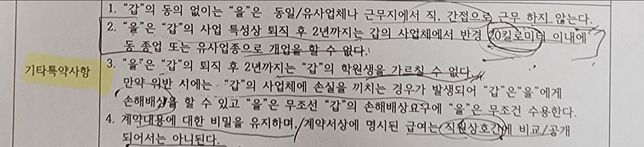 1. "갑"의 동의 없이는 "을"은 동일/유사업체나 근무지에서 직, 간접으로 근무 하지 않는다.
2. "을"은 "갑"의 사업 특성상 퇴직 후 2년까지는 갑의 사업체에서 반경 20킬로미터 이내에
동 종업 또는 유사업종으로 개업을 할 수 없다.
기타특약사항
3. "을"은 "갑"의 퇴직 후 2년까지는 "갑"의 학원생을 가르칠 수 없다.
만약 위반 시에는 "갑"의 사업체에 손실을 끼치는 경우가 발생되어 "갑"은 "을"에게
손해배상을 할 수 있고 "을"은 무조선 "갑"의 손해배상요구에 "을"은 무조건 수용한다.
4. 계약내용에 대한 비밀을 유지하며, 계약서상에 명시된 급여는 직원상호간에 비교/공개
되어서는 아니된다.